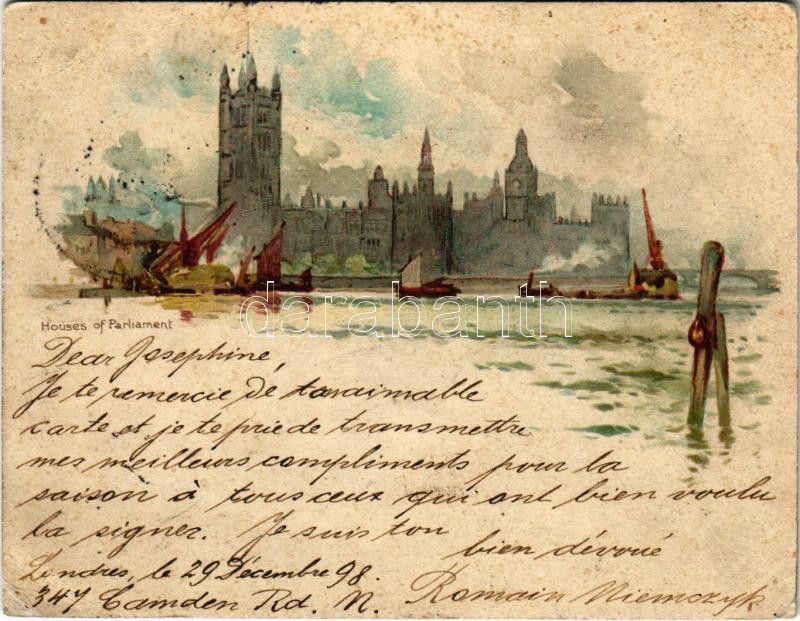 darabanth
Houses of Parliament
Dear Josephine,
Je te remercie de ta aimable
carte et je te prie de transmettre
mes meilleurs compliments pour la
saison à tous ceux qui ont bien voulu
la signer. Je suis ton
bien dévoué
Londres, le 29 Décembre 98.
347 Camden Rd. N. Romain Niemczyk